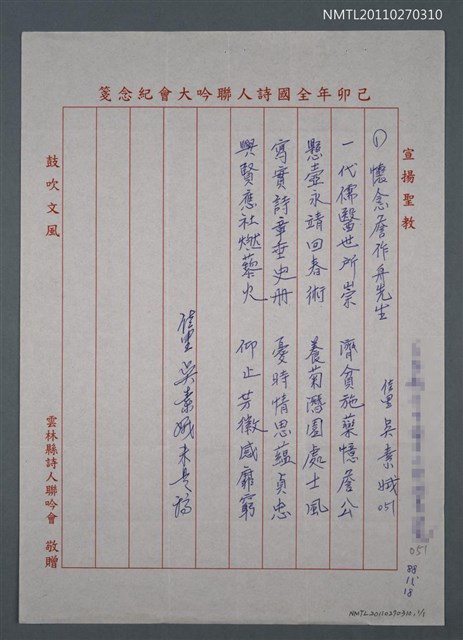 NMTL20110270310
己卯年全國詩人聯吟大會紀念箋
宣揚聖教
① 懷念詹作舟先生
佳里 吳素娥 051
一代儒醫世所崇 濟貧施藥憶詹公
懸壺永靖回春術 養菊潛園處士風
寫實詩章垂史册 憂時情思蘊貞忠
興賢應社燃藜火 仰止芳徽感靡窮
佳里 吳素娥未是稿
鼓吹文風
雲林縣詩人聯吟會 敬贈
051
88
11/
18
NMTL20110270310, 1/1